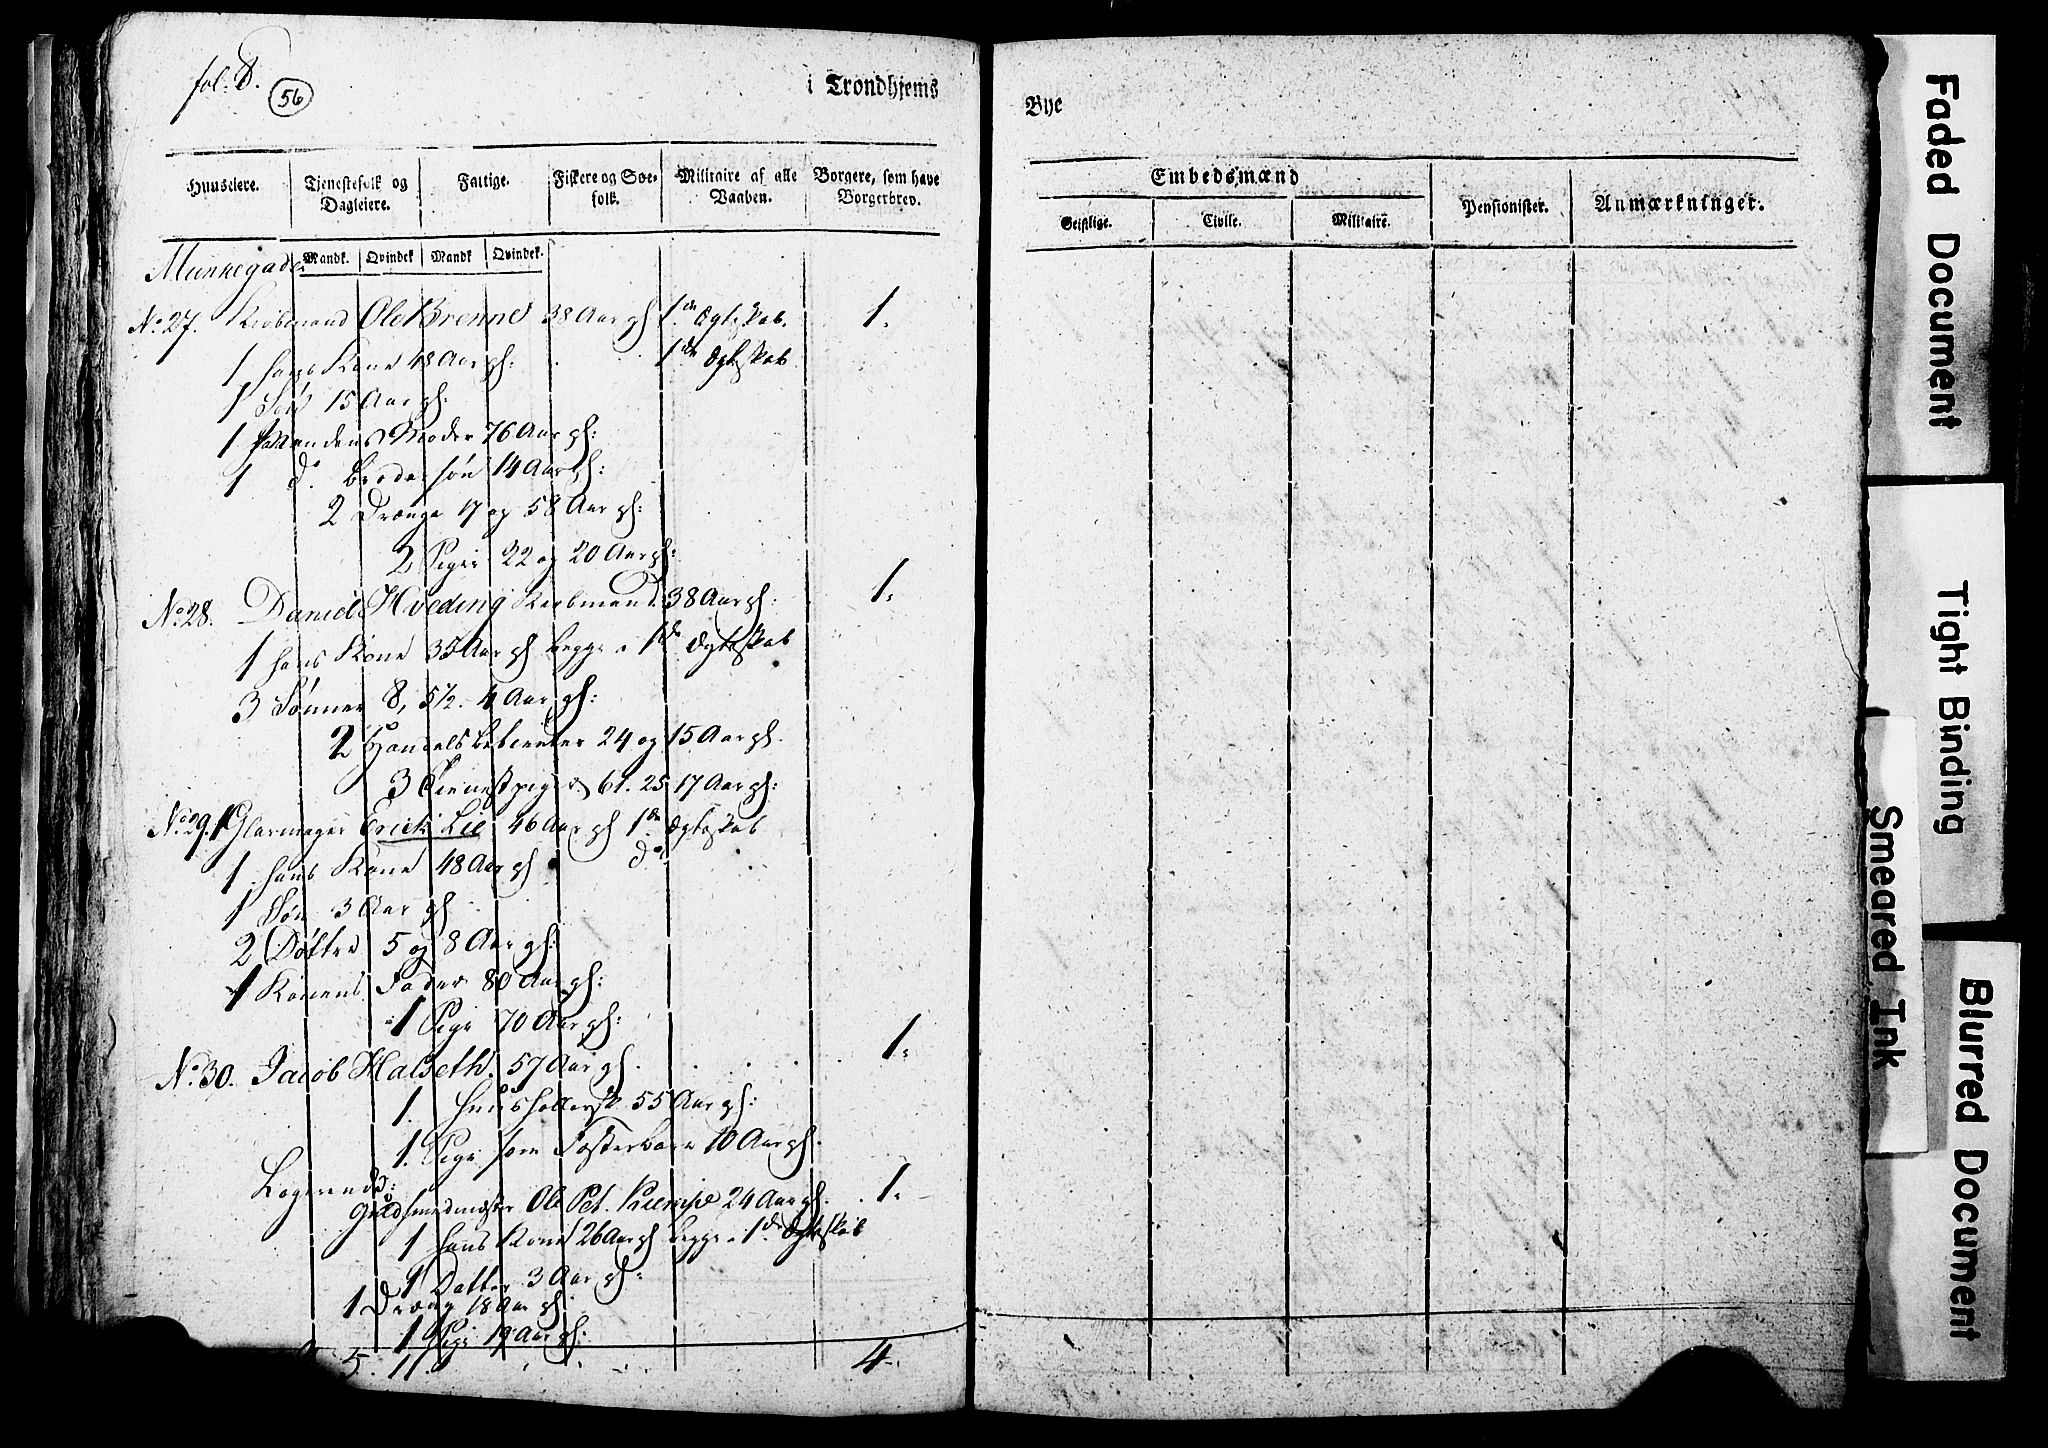 fol. 8.
56
i Trondhjems
Bye
Huuseiere.
Tjenestefolk og Dagleiere.
Fattige.
Fiskere og Søe-folk.
Militaire af alle Vaaben.
Borgere, som have Borgerbrev.
Embedsmænd
Geistlige.
Civile.
Militaire.
Pensionister.
Anmærkninger.
Mandk. Qvindek Mandk Qvindek.
Munkegaden
No. 27. Kiøbmand Ole Brenne 38 Aar gl 1de Ægteskab. 1.
1 hans Kone 48 Aar gl: 1de Ægteskab
1 Søn 15 Aar gl:
1 Mandens Moder 76 Aar gl:
1 do. Brodersøn 14 Aar gl:
2 Drenge 17 og 58 Aar gl:
2 Piger 22 og 20 Aar gl:
No. 28. Daniel Hveding Kiøbmand 38 Aar gl: 1.
1 hans Kone 35 Aar gl begge i 1de Ægteskab
3 Sønner 8, 5½. 4 Aar gl:
2 Handelsbetienter 24 og 15 Aar gl.
3 Tienestpiger 61. 25 17 Aar gl:
No. 29. 1 Glarmager Erick Lie 46 Aar gl 1de Ægteskab
1 hans Kone 48 Aar gl do
1 Søn 3 Aar gl
2 Døttre 5 og 8 Aar gl:
1 Konens Fader 80 Aar gl:
1 Pige 70 Aar gl:
No. 30. Jacob Halseth. 57 Aar gl. 1.
1. Huusholdersk 55 Aar gl:
1. Pige som Fosterbarn 10 Aar gl.
Logerende:
Guldsmedmester Ole Pet. Kiempe 24 Aar gl. 1.
1 hans Kone 26 Aar gl begge i 1de Ægteskab
1 Datter 3 Aar gl:
1 Dreng 18 Aar gl
1 Pige 19 Aar gl:
5. 11. 4.
Faded Document
Tight Binding
Smeared Ink
Blurred Document